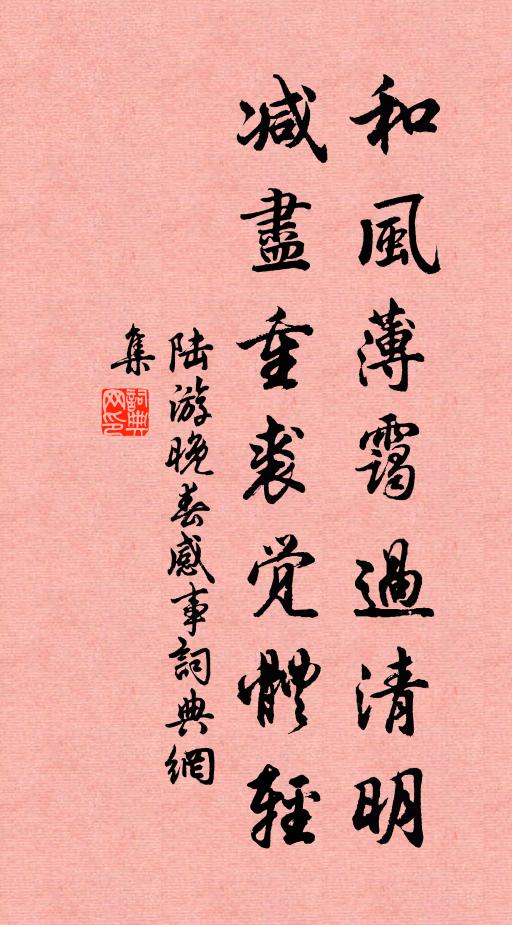 和風薄靄過清明
减盡重裘覺體輕
陆游晚春感事詞典網
集
詞典网印